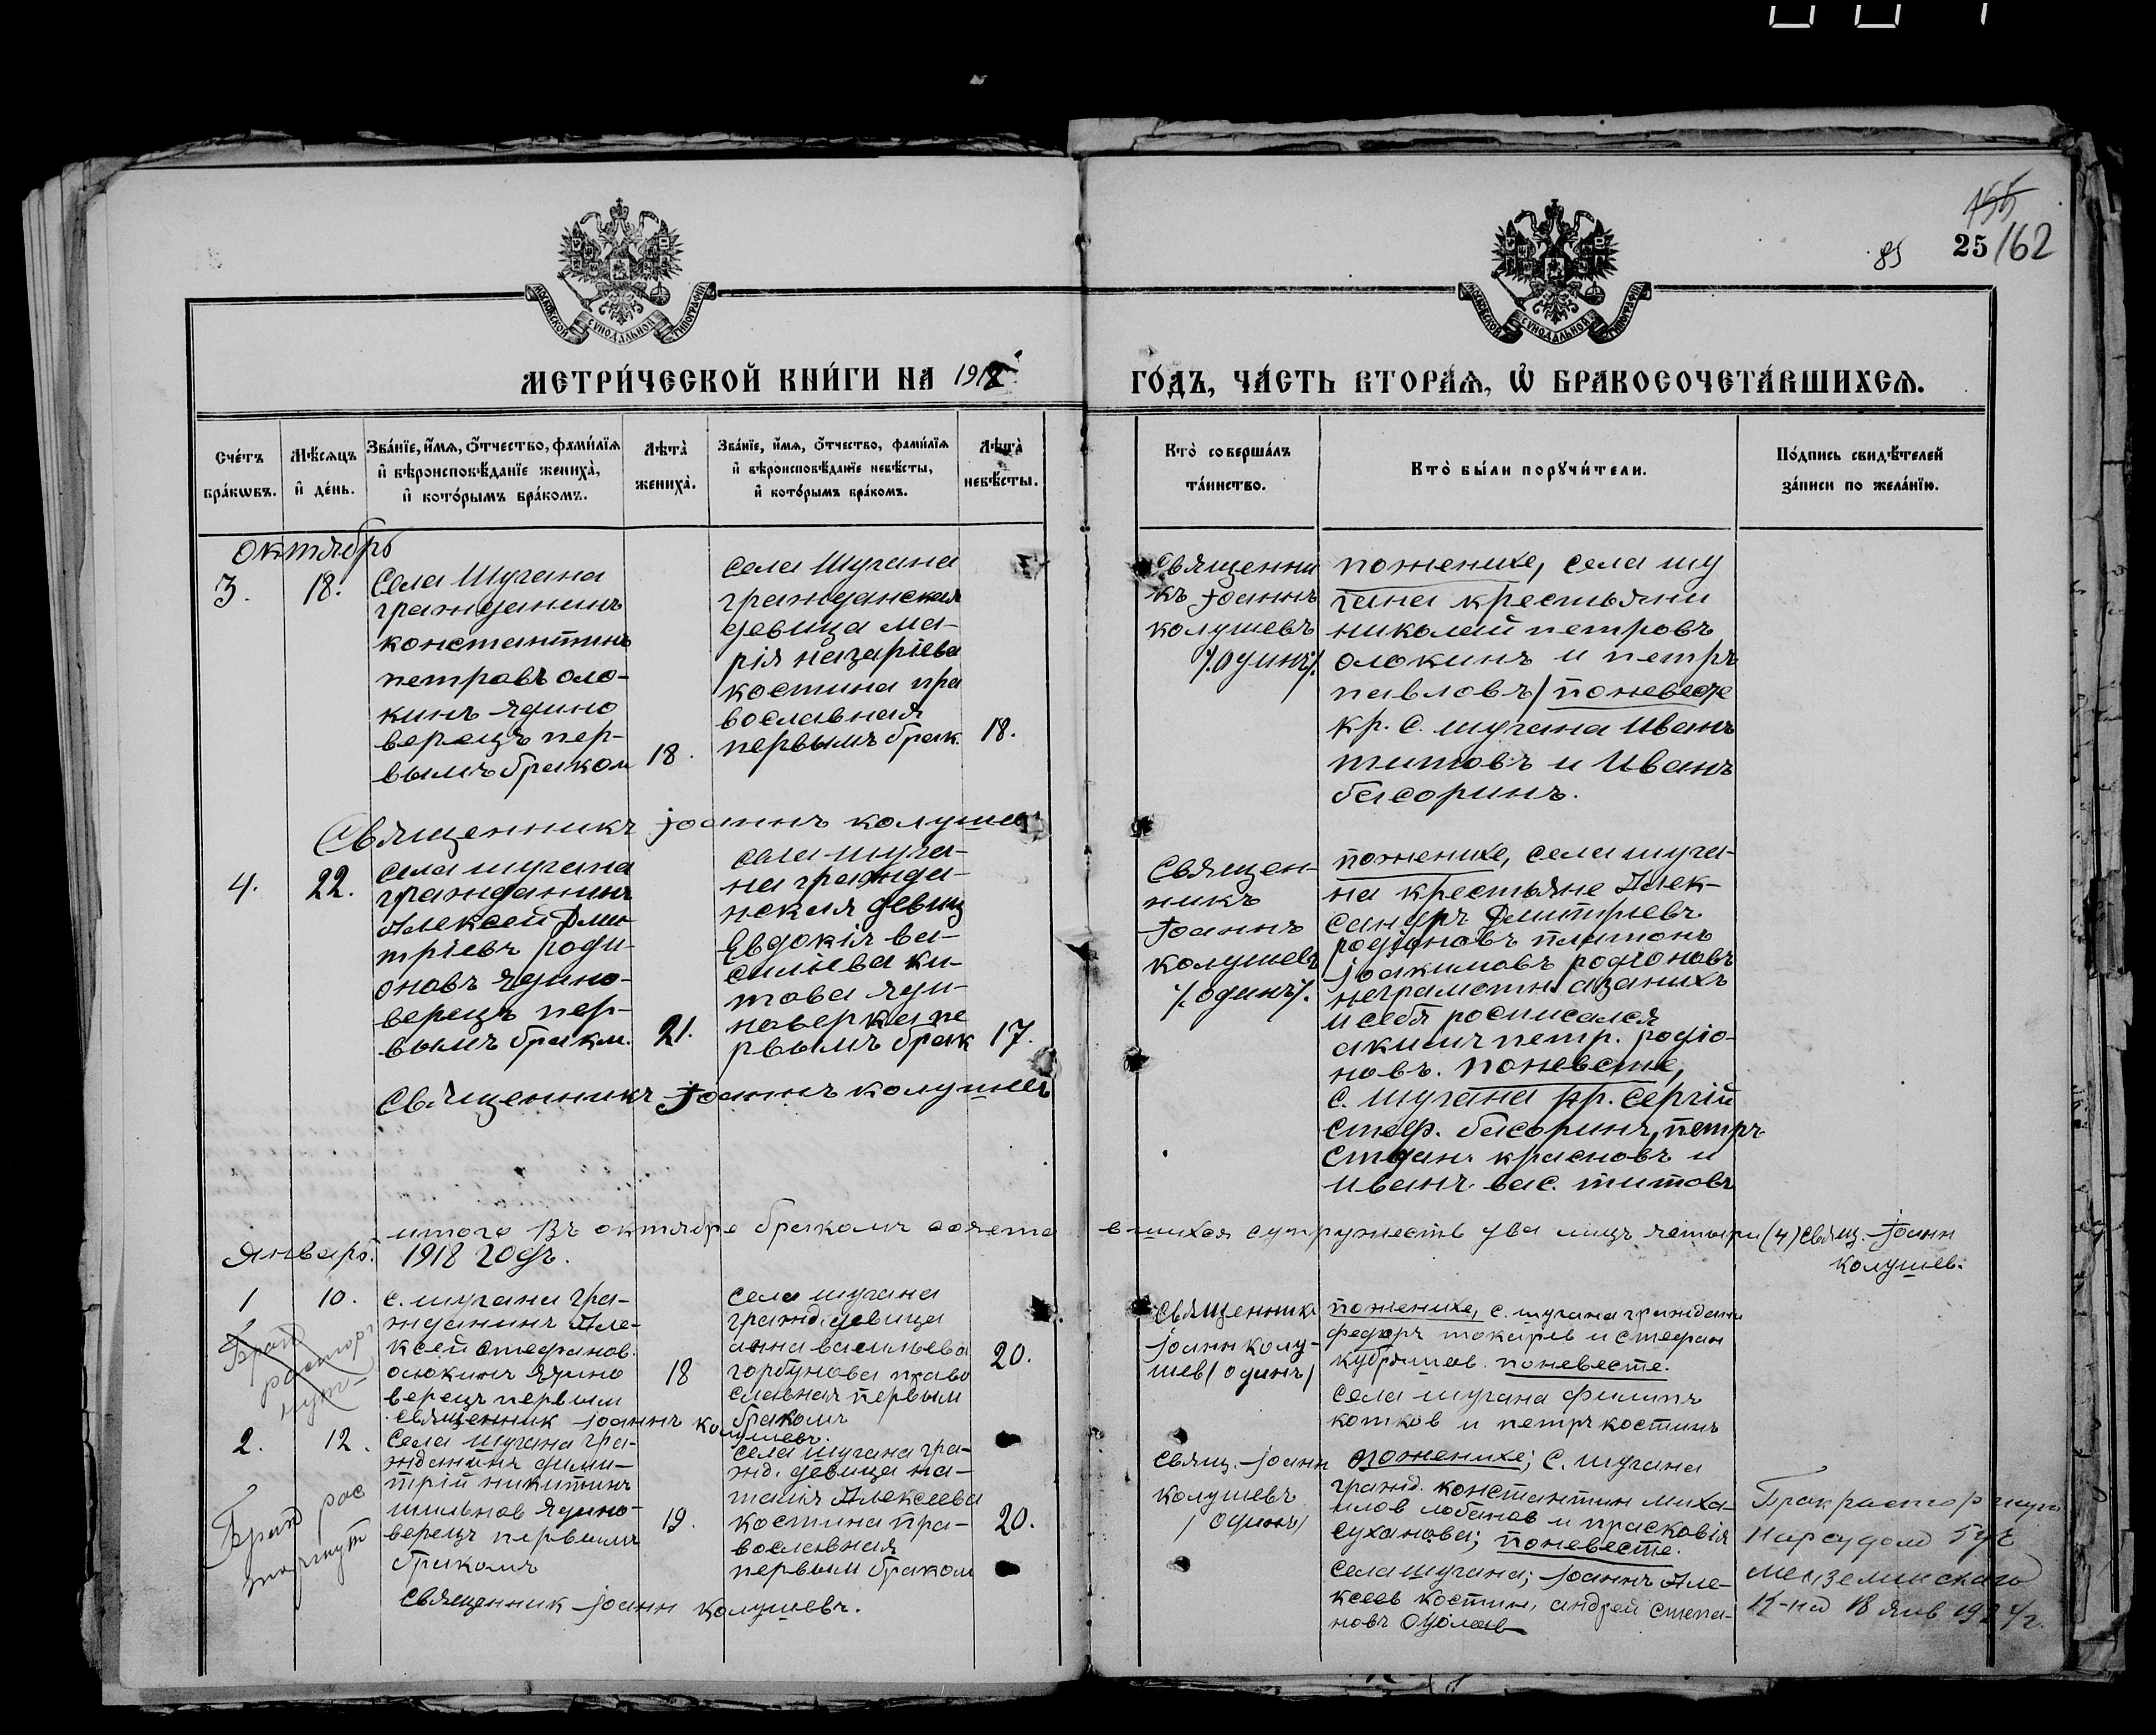 155
85 25/162
МОСКОВСКОЙ СУНОДАЛЬНОЙ ТИПОГРАФІИ
МОСКОВСКОЙ СУНОДАЛЬНОЙ ТИПОГРАФІИ
МЕТРИ́ЧЕСКОЙ КНИ́ГИ НА 1918 ГО́ДЪ, ЧА́СТЬ ВТОРА́Ѧ, Ѡ БРАКОСОЧЕТА́ВШИХСѦ.
Сче́тъ бра́кѡвъ.
Мѣ́сѧцъ и҆ де́нь.
Зва́нїе, и҆́мѧ, ѻ҆́тчество, фами́лїѧ
и҆ вѣроисповѣ́данїе жениха̀,
и҆ кото́рымъ бра́комъ.
Лѣта̀ жениха̀.
Зва́нїе, и҆́мѧ, ѻ҆́тчество, фами́лїѧ
и҆ вѣроисповѣ́данїе невѣ́сты,
и҆ кото́рымъ бра́комъ.
Лѣта̀ невѣ́сты.
Кто̀ соверша́лъ
та́инство.
Кто̀ бы́ли порꙋчи́тели.
По́дпись свидѣ́телей
за́писи по жела́нїю.
октябрь
3.
18.
Села Шугана
гражданинъ
константинъ
петровъ оло-
кинъ ядино
верецъ пер-
вымъ браком
18.
села Шугана
гражданская
девица ма-
рія назаріева
костина пра
вославная
первымъ брак.
18.
Священни
къ Іоаннъ
колушевъ
/.одинъ/.
пожениχе, села шу
гана крестьяни
николай петровъ
олокинъ и петръ
павловъ/ поневесте
кр. с. шугана иванъ
титовъ и иванъ
басоринъ.
Священникъ Іоаннъ колушев
4.
22.
села шугана
гражданинъ
Алексей Дми
тріевъ роди
оновъ ядино-
верецъ пер-
вымъ браком.
21.
села шуга-
на гражда-
нская девиц
Евдокія ва-
силіева ки-
това яди-
наверка пе
рвымъ брак
17.
Священ-
никъ
Іоаннъ
колушевъ
/.одинъ/.
поженихе, села шуга-
на крестьяне Алек-
сандръ Дмитріевъ
родіоновъ платонъ
Іоакимовъ родіоновъ
неграмотн. азанихъ
и себя росписался
акимъ петр. родіо-
новъ. поневесте,
с. шугана кр. сергій
стеф. басоринъ, петръ
степан. красновъ и
иванъ вас. титовъ
Священникъ Іоаннъ колушевъ
итого въ октябре бракомъ сочета вшихся супружеств два лицъ четыри (4) свящ. Іоанн
колушев.
январь. 1918 годъ.
1
10.
с. шугана гра-
жданинъ Але-
ксей стефанов.
олюкинъ ядино
верецъ первым
18
села шугана
гражд. девица
анна васильева
горбунова право
славная первым
бракомъ
20.
Священникъ
Іоанн колу-
шев/ одинъ/
поженихе, с. шугана граждани
федоръ токарев и стефан
поневесте.
села шугана филипъ
котков и петръ костинъ
Брак
расторг
нут
священник Іоаннъ колушевъ.
2.
12.
села шугана гра-
жданинъ дими-
трій никитинъ
ядино-
верецъ первымъ
бракомъ
19.
села шугана гра-
жд. девица на-
талія Алексеева
костина пра-
вославная
первым браком
20.
свящ. Іоанн
колушевъ
/ одинъ/
поженихе; с. шугана
гражд. константин миха-
илов лобанов и прасковія
суханова; поневесте.
села шугана; Іоаннъ Але-
ксеев костин, андрей степа-
новъ
Брак рас
торгнут
Брак расторгнут
нарсудом 5 уч
мензелинскаго
к-на 18 янв 1924/г.
священник Іоанн колушевъ.